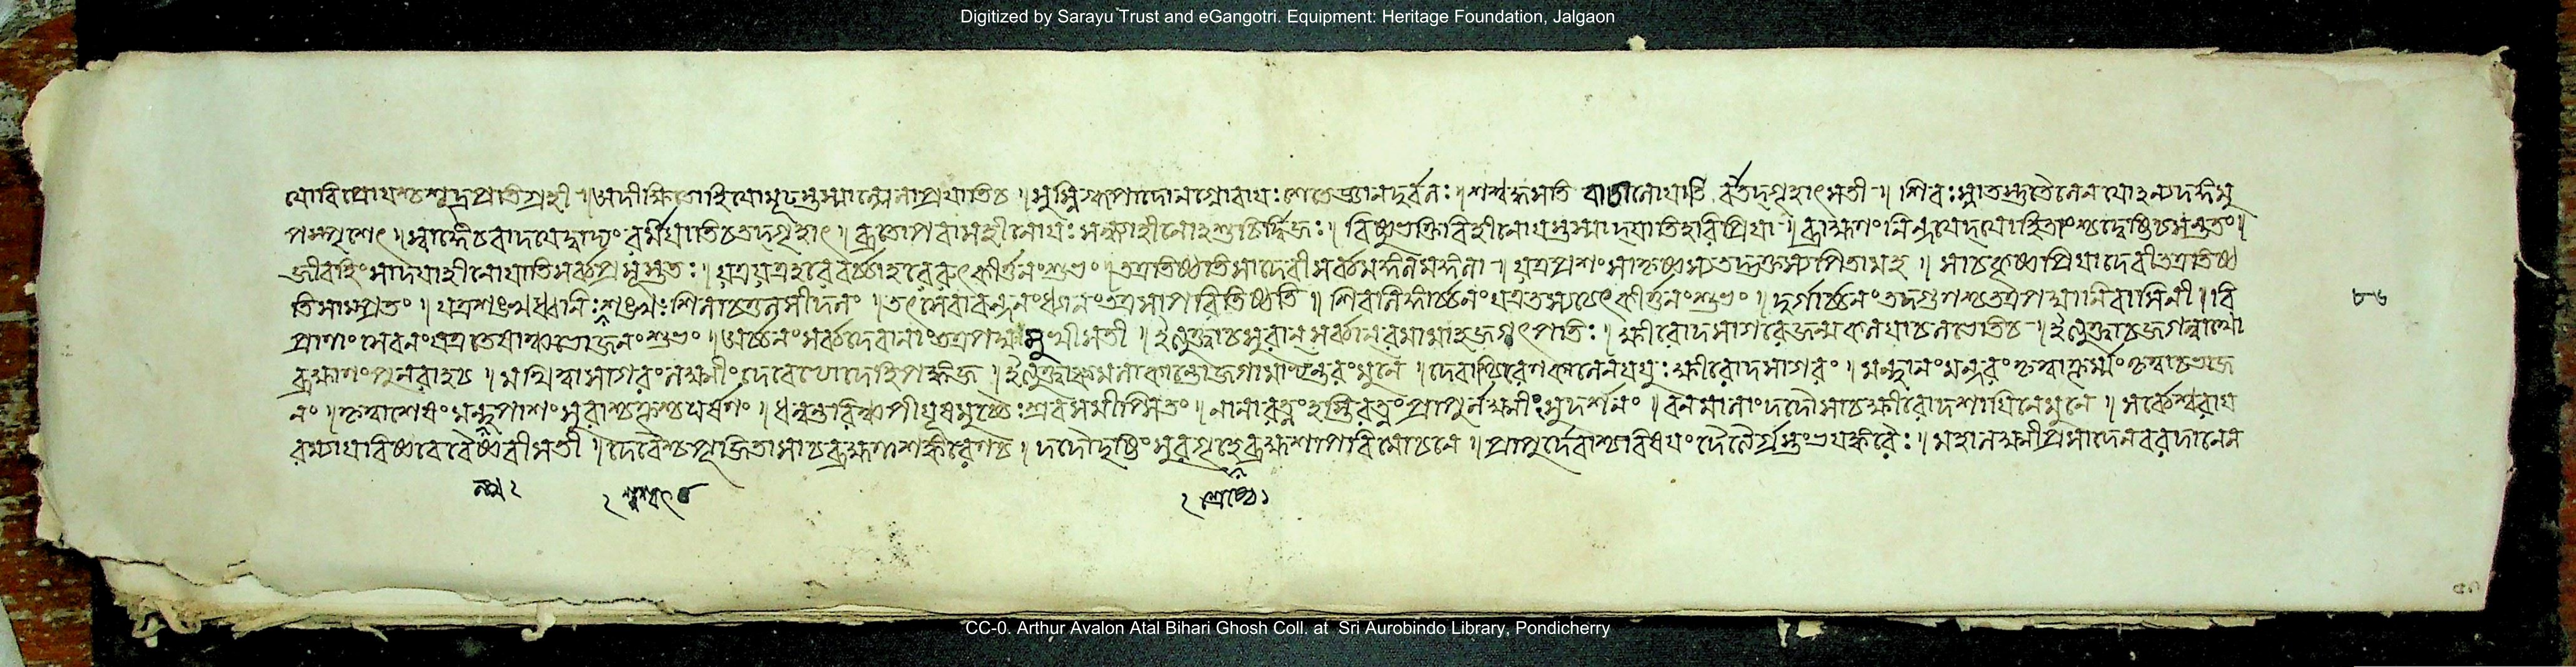 Digitized by Sarayu Trust and eGangotri. Equipment: Heritage Foundation, Jalgaon
যোবিপ্রোযশ্চশূদ্রপ্রতিগ্রহী ॥ অদীক্ষিতোহিযোমূঢস্তস্মাল্লোলাপ্রযাতিচ ॥ স্নিগ্ধপাদোনগ্নোবাযঃ শেতে জ্ঞানদুর্বলঃ । শশ্বদ্ধসতি বাচালোযাতি তদ্গৃহাৎসতী ॥ শিরঃস্নাতস্তুতৈলেন যোঽন্যদঙ্গমু
পস্পৃশেৎ । স্বাঙ্গেচবাদযেদ্বাদ্যং যাতিচতদ্গৃহাৎ । ব্রতোপবাসহীনোযঃ সন্ধ্যাহীনোঽশুচির্দ্বিজঃ । বিষ্ণুভক্তিবিহীনোযস্তস্মাদ্যাতিহরিপ্রিযা ॥ ব্রাহ্মণংনিন্দযেদ্যোহি তাংশ্চদ্বেষ্টিচসন্ততং ॥
জীবহিংসাদযাহীনোযাতিসর্ব্বপ্রসূস্ততঃ । যত্রযত্রহরেরর্চ্চাহরেরুৎকীর্ত্তনংশুভং । তত্রতিষ্ঠতিসাদেবীসর্ব্বমঙ্গলমঙ্গলা ॥ যত্রপ্রশংসাকৃষ্ণস্যতদ্ভক্তস্যপিতামহ । সাচকৃষ্ণপ্রিযাদেবীতত্রতিষ্ঠ
তিসাম্প্রতং ॥ যত্রশঙ্খধ্বনিঃশঙ্খঃশিলাচতুলসীদলং । তৎসেবাবন্দনংধ্যানংতত্রসাপরিতিষ্ঠতি ॥ শিবলিঙ্গার্চ্চনংযত্রতস্যচোৎকীর্ত্তনংশুভং । দুর্গার্চ্চনংতদ্গুণশ্চতত্রপদ্মনিবাসিনী । বি
প্রাণাং সেবনংযত্রতেষাঞ্চভোজনংশুভং । অর্চ্চনংসর্ব্বদেবানাংতত্রপদ্মমুখীসতী ॥ ইত্যুক্ত্বাচসুরান্সর্ব্বান্রমামাহজগৎপতিঃ । ক্ষীরোদসাগরেজন্মকলযাচলভেতিচ ॥ ইত্যুক্ত্বাচজগন্নাথো
ব্রহ্মাণংপুনরাহচ । মথিত্বাসাগরংলক্ষ্মীংদেবেভ্যোদেহিপঙ্কজ । ইত্যুক্ত্বাকমলাকান্তোজগামাভ্যন্তরংমুনে । দেবাশ্চিরেণকালেনযযুঃক্ষীরোদসাগরং । মন্থানংমন্দরংকৃত্বাকূর্ম্মংকৃত্বাচভাজ
নং । কৃত্বাশেষংমন্থপাশংসুরাশ্চক্রুশ্চঘর্ষণং । ধন্বন্তরিঞ্চপীযূষমুচ্চৈঃশ্রবসমীপ্সিতং । নানারত্নংহস্তিরত্নংপ্রাপুর্লক্ষ্মীংসুদর্শনং । বনমালাংদদৌসাচক্ষীরোদশাযিনেমুনে । সর্ব্বেশ্বরায
রম্যাযবিষ্ণবেবৈষ্ণবীসতী । দেবৈশ্চপূজিতাসাচব্রহ্মণাশঙ্করেণচ । দদৌদৃষ্টিংসুরগৃহেব্রহ্মশাপবিমোচনে । প্রাপুর্দেবাশ্চবিষযংদৈত্যৈর্গ্রস্তংভযঙ্করৈঃ । মহালক্ষ্মীপ্রসাদেনবরদানেন
৮৬
CC-0. Arthur Avalon Atal Bihari Ghosh Coll. at Sri Aurobindo Library, Pondicherry